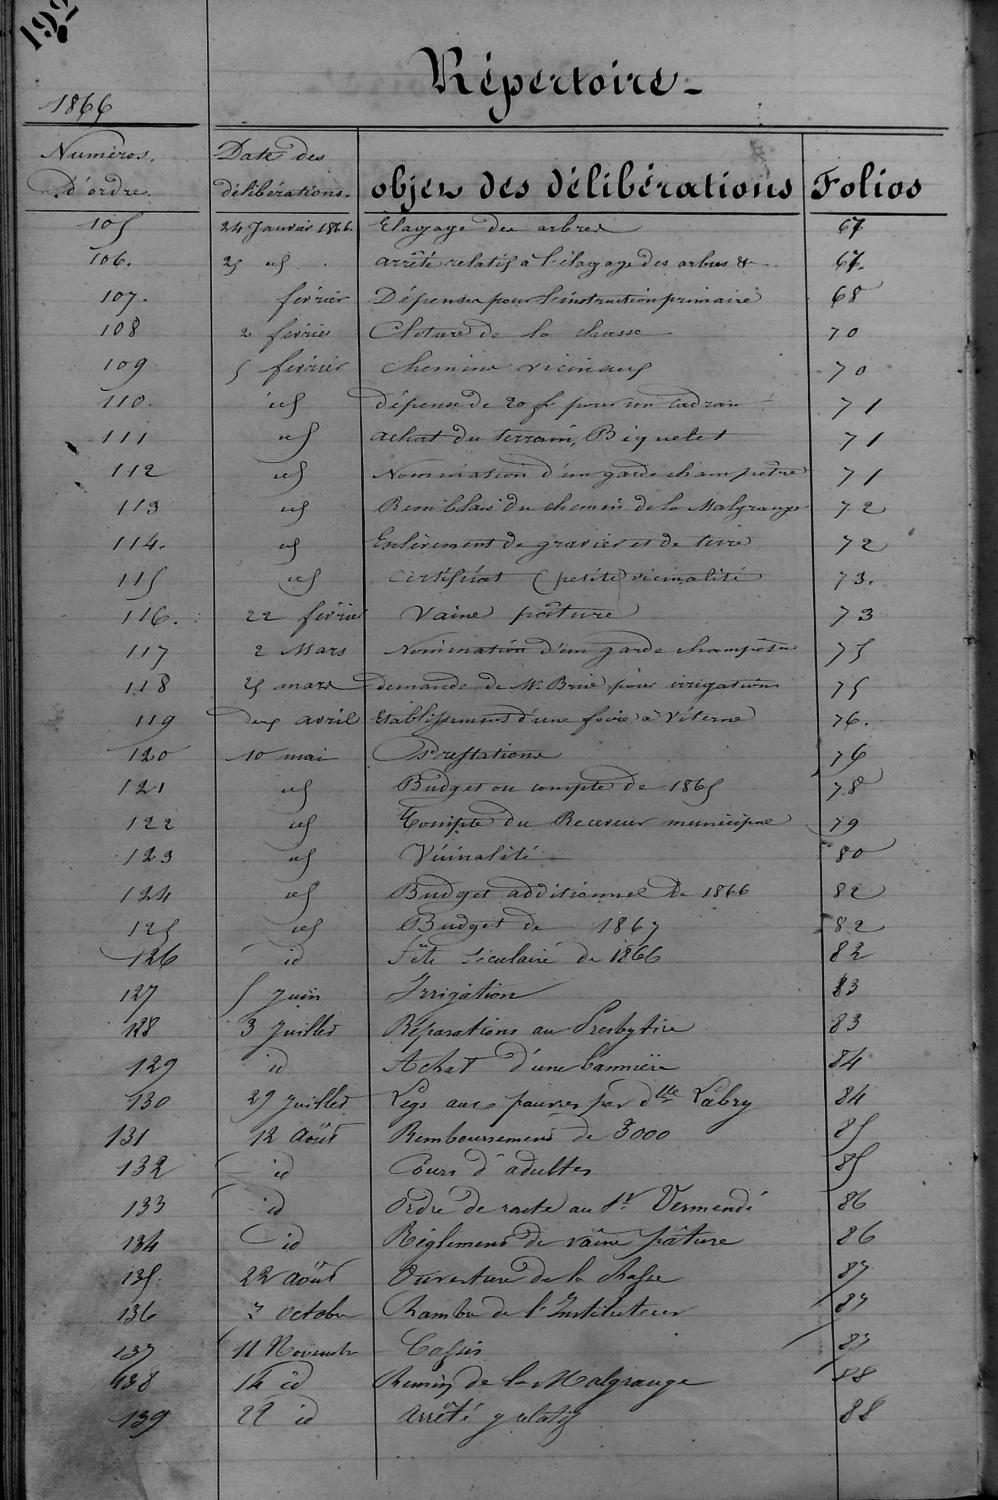 192
Répertoire
1866
Numéros d'ordre
Date des délibérations
objet des délibérations
Folios
105 24 Janvier 1866. Elagage des arbres 67
106. 25 id arrêté relatif à l'élagage des arbres & 67.
107. février Dépenses pour l'instruction primaire 68
108 2 février Cloture de la chasse 70
109 5 février Chemins vicinaux 70
110. id dépense de 20 f. pour un cadran 71
111 id achat du terrain, Biquelet 71
112 id Nomination d'un garde champêtre 71
113 id Remblais du chemin de la Malgrange 72
114. id Enlèvement de gravier et de terre 72
115 id Certificat (petite) vicinalité 73.
116. 22 février Vaine pâture 73
117 2 Mars Nomination d'un garde champêtre 75
118 25 mars demande de Mr. pour irrigation 75
119 deux avril Etablissement d'une foire à Viterne 76.
120 10 mai Prestations 76
121 id Budget ou compte de 1865 78
122 id Compte du Receveur municipal 79
123 id Vicinalité 80
124 id Budget additionnel de 1866 82
125 id Budget de 1867 82
126 id Fête séculaire de 1866 82
127 5 Juin Irrigation 83
128 3 Juillet Réparations au Presbytère 83
129 id Achat d'une bannière 84
130 29 Juillet Legs aux pauvres par dlle Labry 84
131 12 Août Remboursement de 3000 85
132 id Cours d'adultes 85
133 id Ordre de route au Sr. Vermendé 86
134 id Règlement de vaine pâture 86
135. 22 août Ouverture de la chasse 87
136 7 octobre Chambre de l'Instituteur 87
137 11 Novembre 87
138 14 id Chemin de la Malgrange 88
139 22 id Arrêté y relatif 88